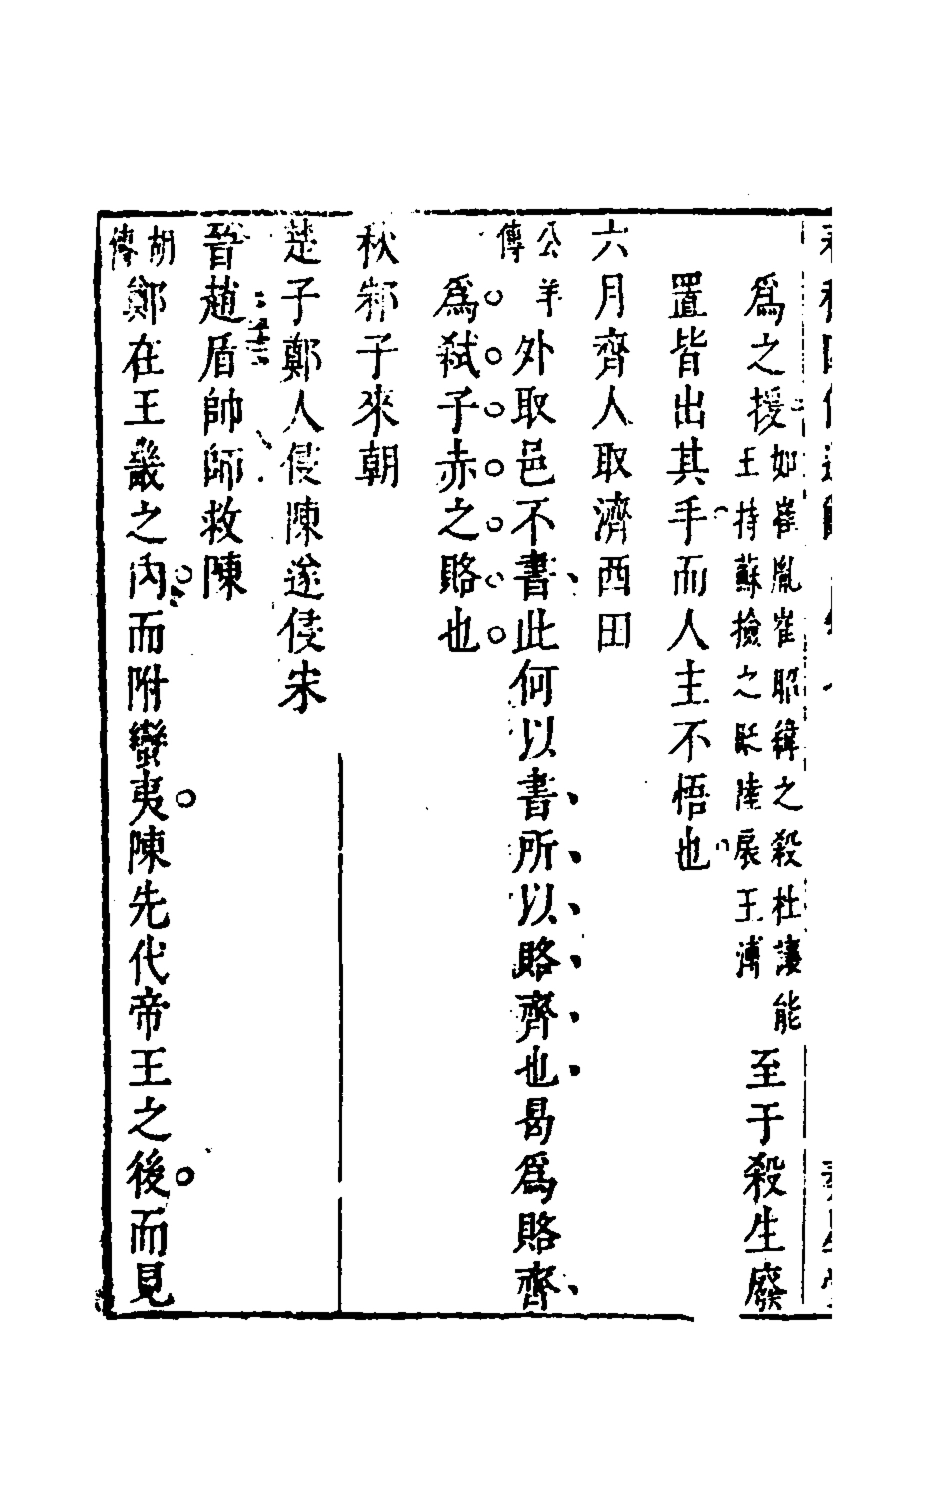 爲之援如崔胤崔昭緯之殺杜讓能王持蘇撿之貶陸扆王溥至于殺生廢
置皆出其手而人主不悟也
六月齊人取濟西田
公羊傳外取邑不書此何以書所以賂齊也曷爲賂齊
爲弒子赤之賂也
秋邾子來朝
楚子鄭人侵陳遂侵宋
晉趙盾帥師救陳
胡傳鄭在王畿之內而附蠻夷陳先代帝王之後而見